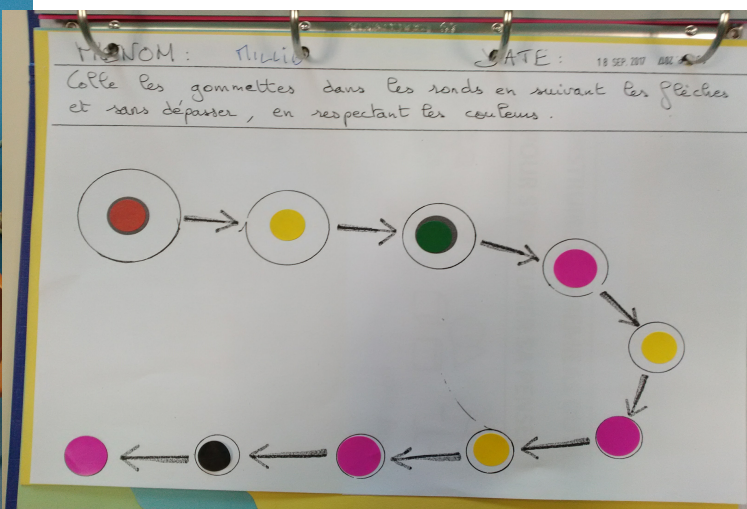 PRÉNOM : DATE : 18 SEP. 2017
Colle les gommettes dans les ronds en suivant les flèches
et sans dépasser, en respectant les couleurs.